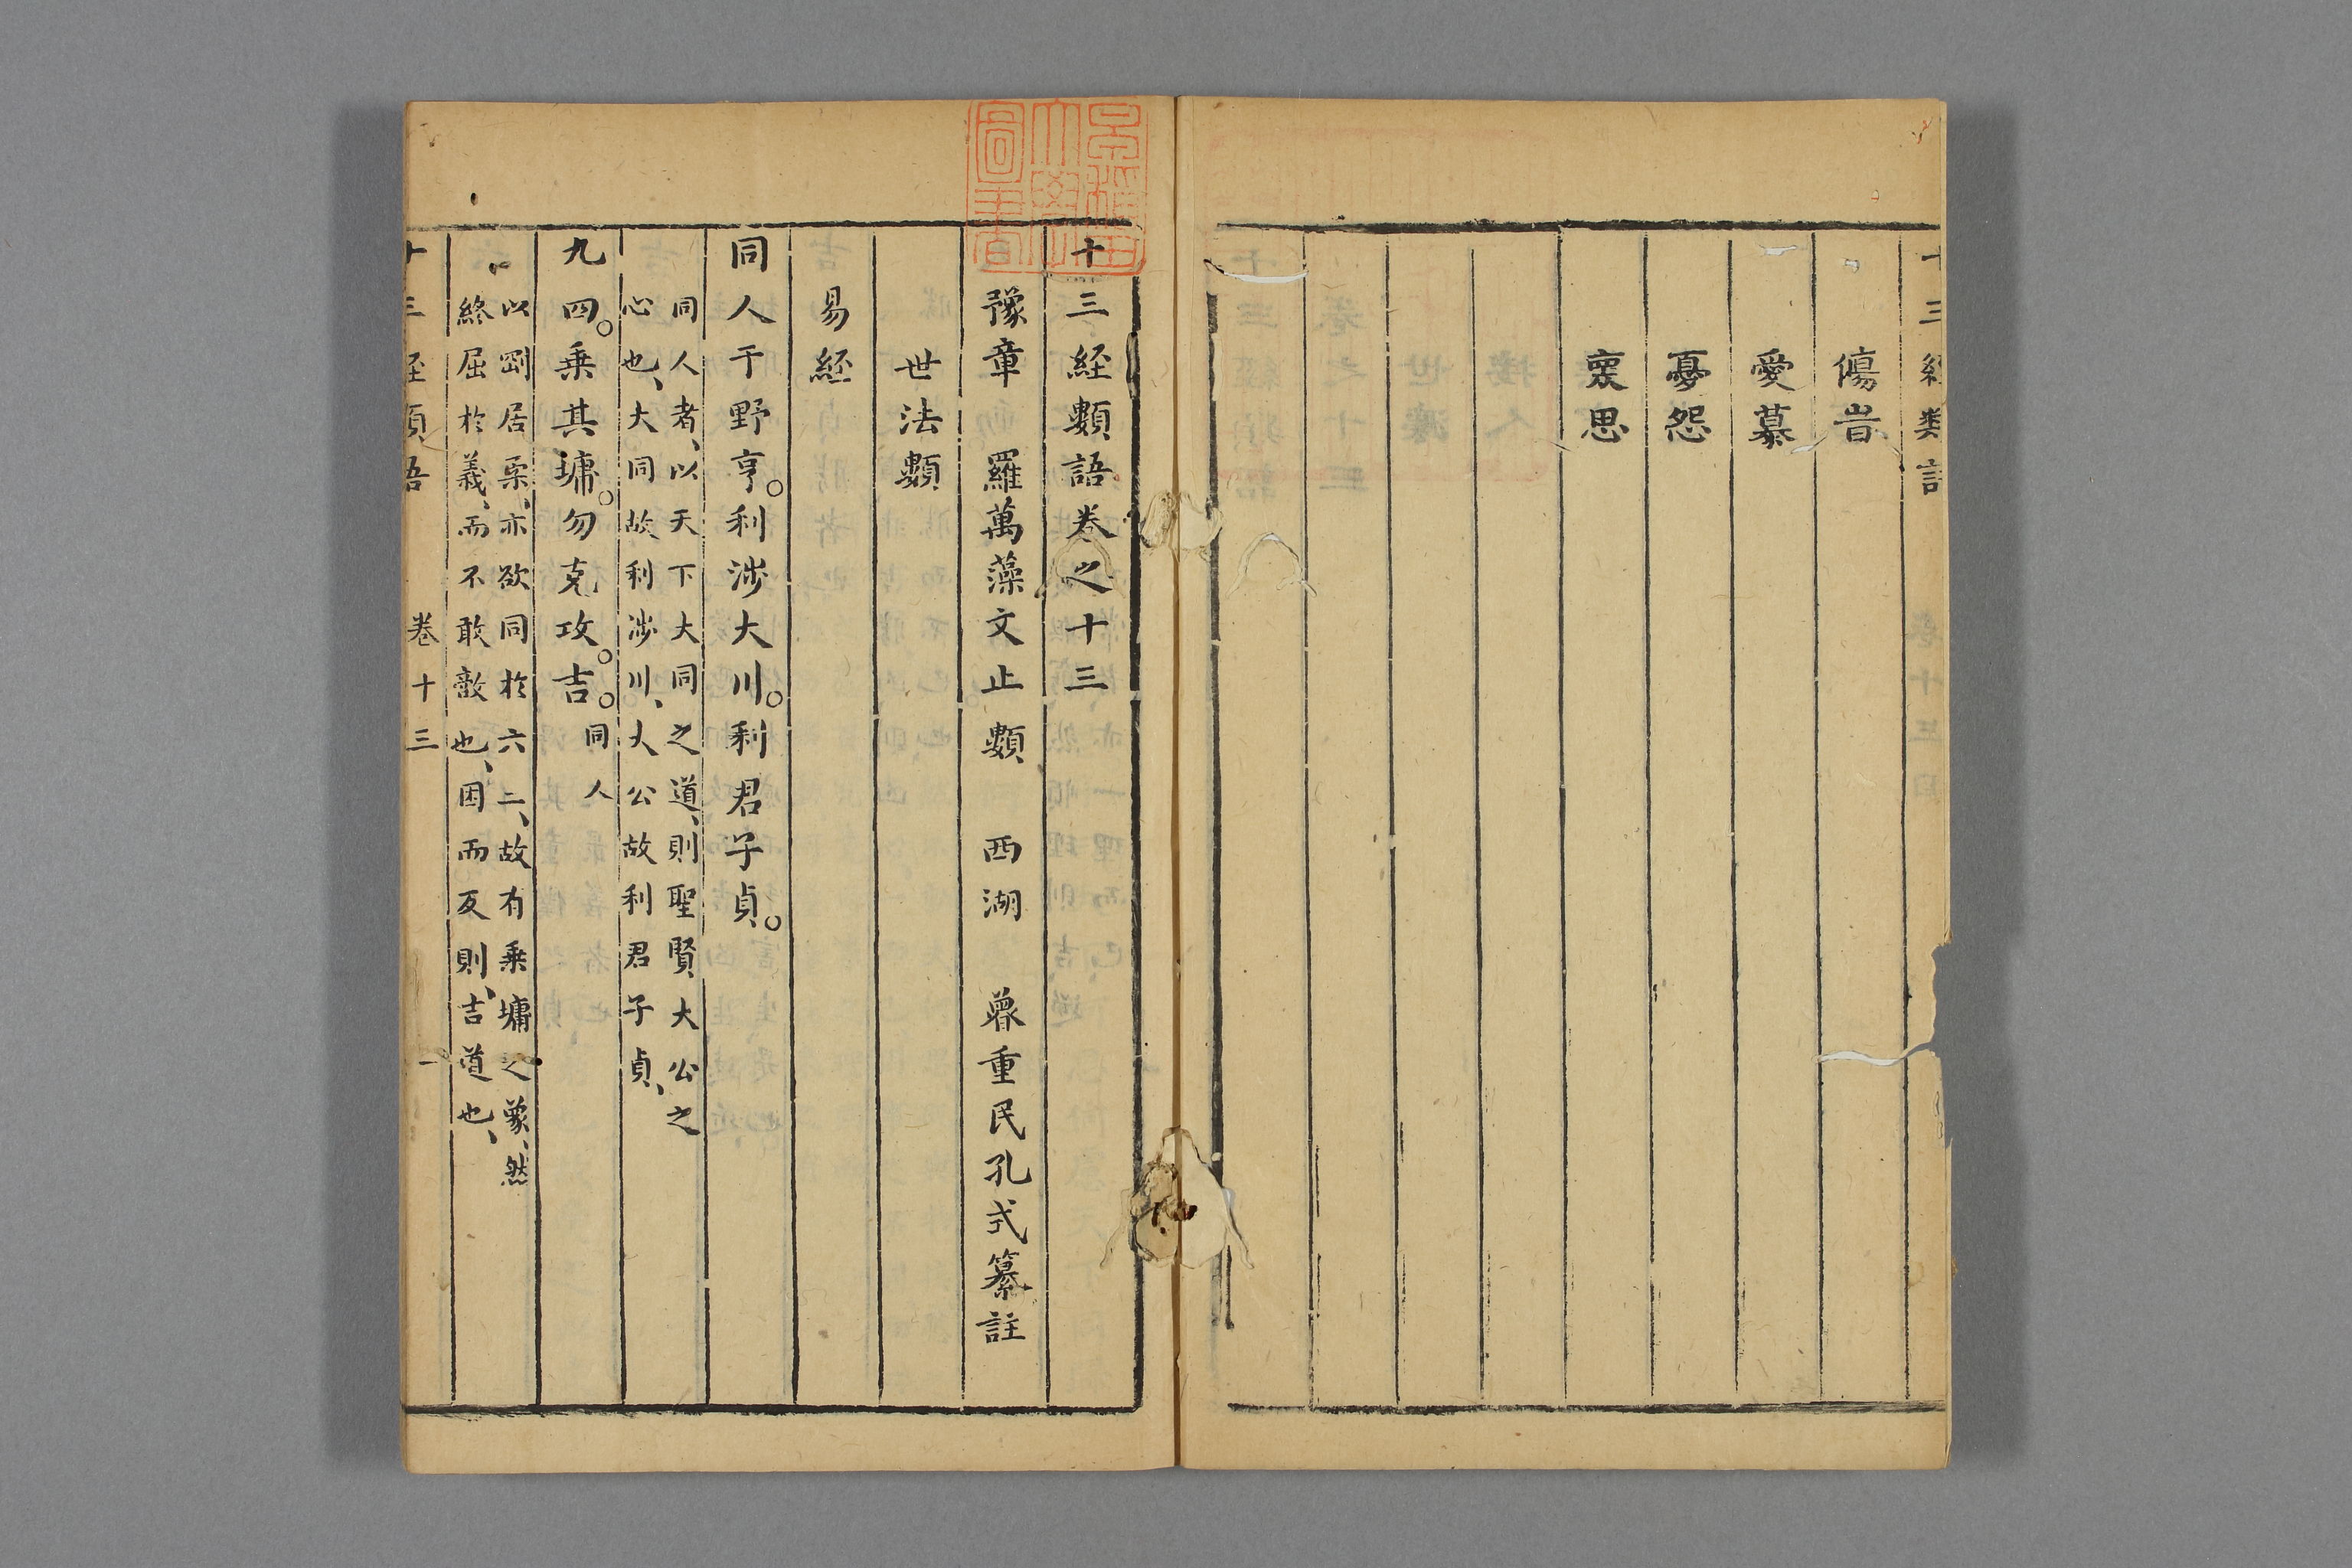 傷昔
愛慕
憂怨
衷思
十三経類語卷之十三
豫章 羅萬藻文止 類 西湖 魯重民孔式纂註
世法類
易経
同人于野亨。利涉大川。利君子貞。
同人者、以天下大同之道、則聖賢大公之
心也、大同故利涉川、大公故利君子貞、
九四。乗其墉。勿克攻。吉。同人
以剛居柔、亦欲同於六二、故有乗墉之象、然
終屈於義、而不敢敵也、困而反則、吉道也、
卷十三 一